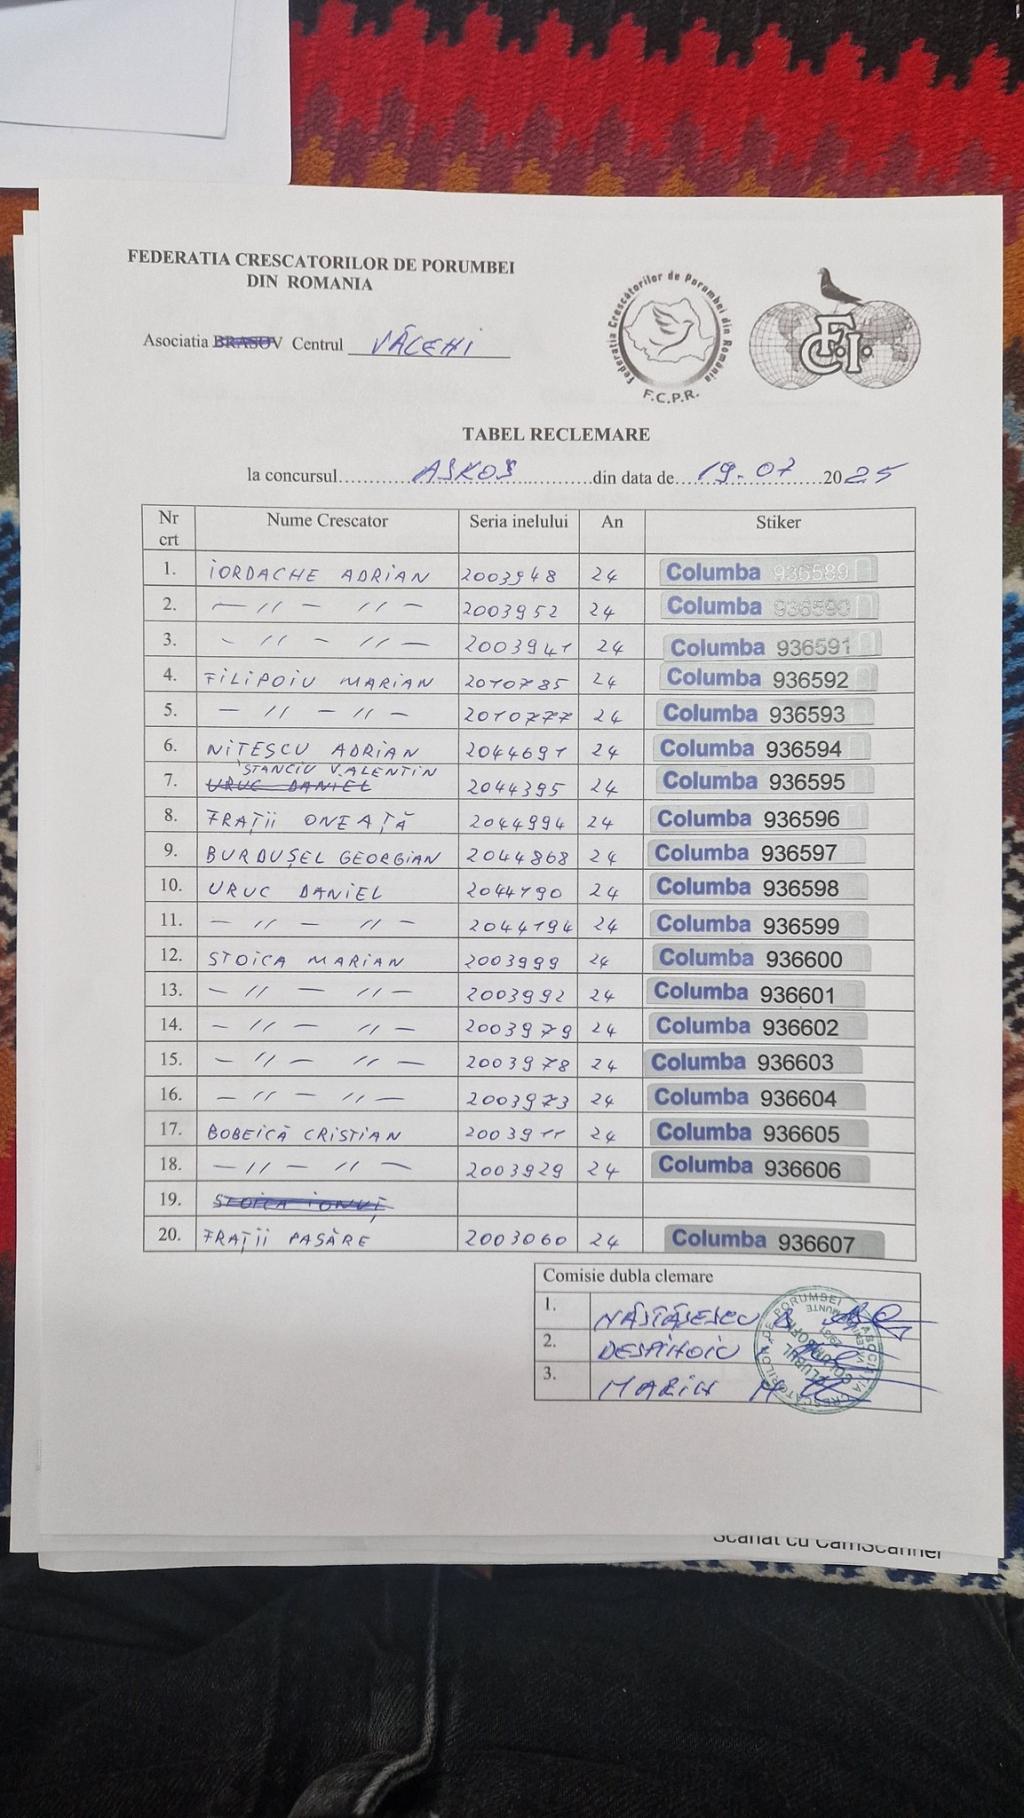 FEDERATIA CRESCATORILOR DE PORUMBEI
DIN ROMANIA
Federatia Crescătorilor de Porumbei din România
F.C.P.R.
FCI
Asociatia BRASOV Centrul VÂLCEHI
TABEL RECLEMARE
la concursul ASKOS din data de 19-07 2025
Nr crt Nume Crescator Seria inelului An Stiker
1. IORDACHE ADRIAN 2003948 24 Columba 936589
2. — 〃 — 〃 — 2003952 24 Columba 936590
3. — 〃 — 〃 — 2003941 24 Columba 936591
4. FILIPOIU MARIAN 2010785 24 Columba 936592
5. — 〃 — 〃 — 2010777 24 Columba 936593
6. NITESCU ADRIAN 2044691 24 Columba 936594
STANCIU VALENTIN
7. URUC DANIEL 2044395 24 Columba 936595
8. FRAȚII ONEAȚĂ 2044994 24 Columba 936596
9. BURDUȘEL GEORGIAN 2044868 24 Columba 936597
10. URUC DANIEL 2044190 24 Columba 936598
11. — 〃 — 〃 — 2044194 24 Columba 936599
12. STOICA MARIAN 2003999 24 Columba 936600
13. — 〃 — 〃 — 2003992 24 Columba 936601
14. — 〃 — 〃 — 2003979 24 Columba 936602
15. — 〃 — 〃 — 2003978 24 Columba 936603
16. — 〃 — 〃 — 2003973 24 Columba 936604
17. BOBEICĂ CRISTIAN 2003911 24 Columba 936605
18. — 〃 — 〃 — 2003929 24 Columba 936606
19. STOICA IONUȚ
20. FRAȚII PASĂRE 2003060 24 Columba 936607
Comisie dubla clemare
1. NĂSTĂSESCU
2. DESPIHOIU
3. MARIN M
Scanat cu CamScanner